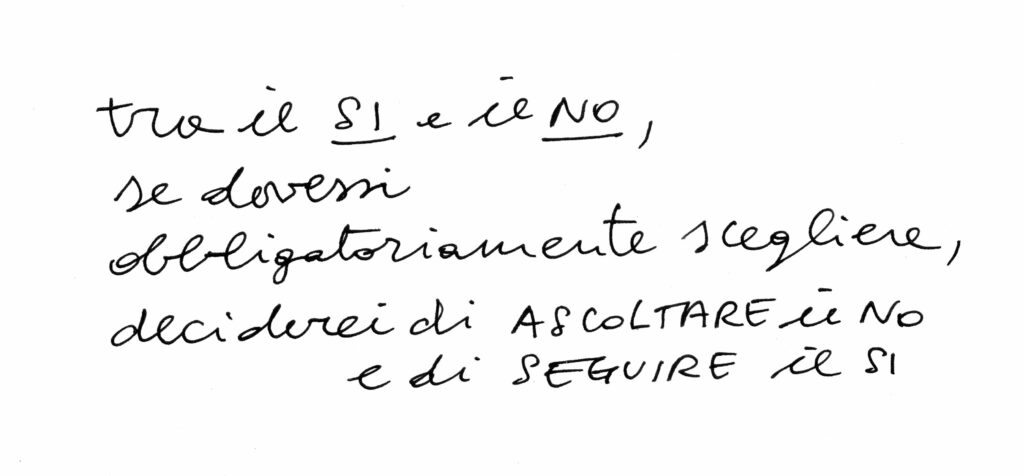 tra il SI e il NO,
se dovessi
obbligatoriamente scegliere,
deciderei di ASCOLTARE il NO
e di SEGUIRE il SI